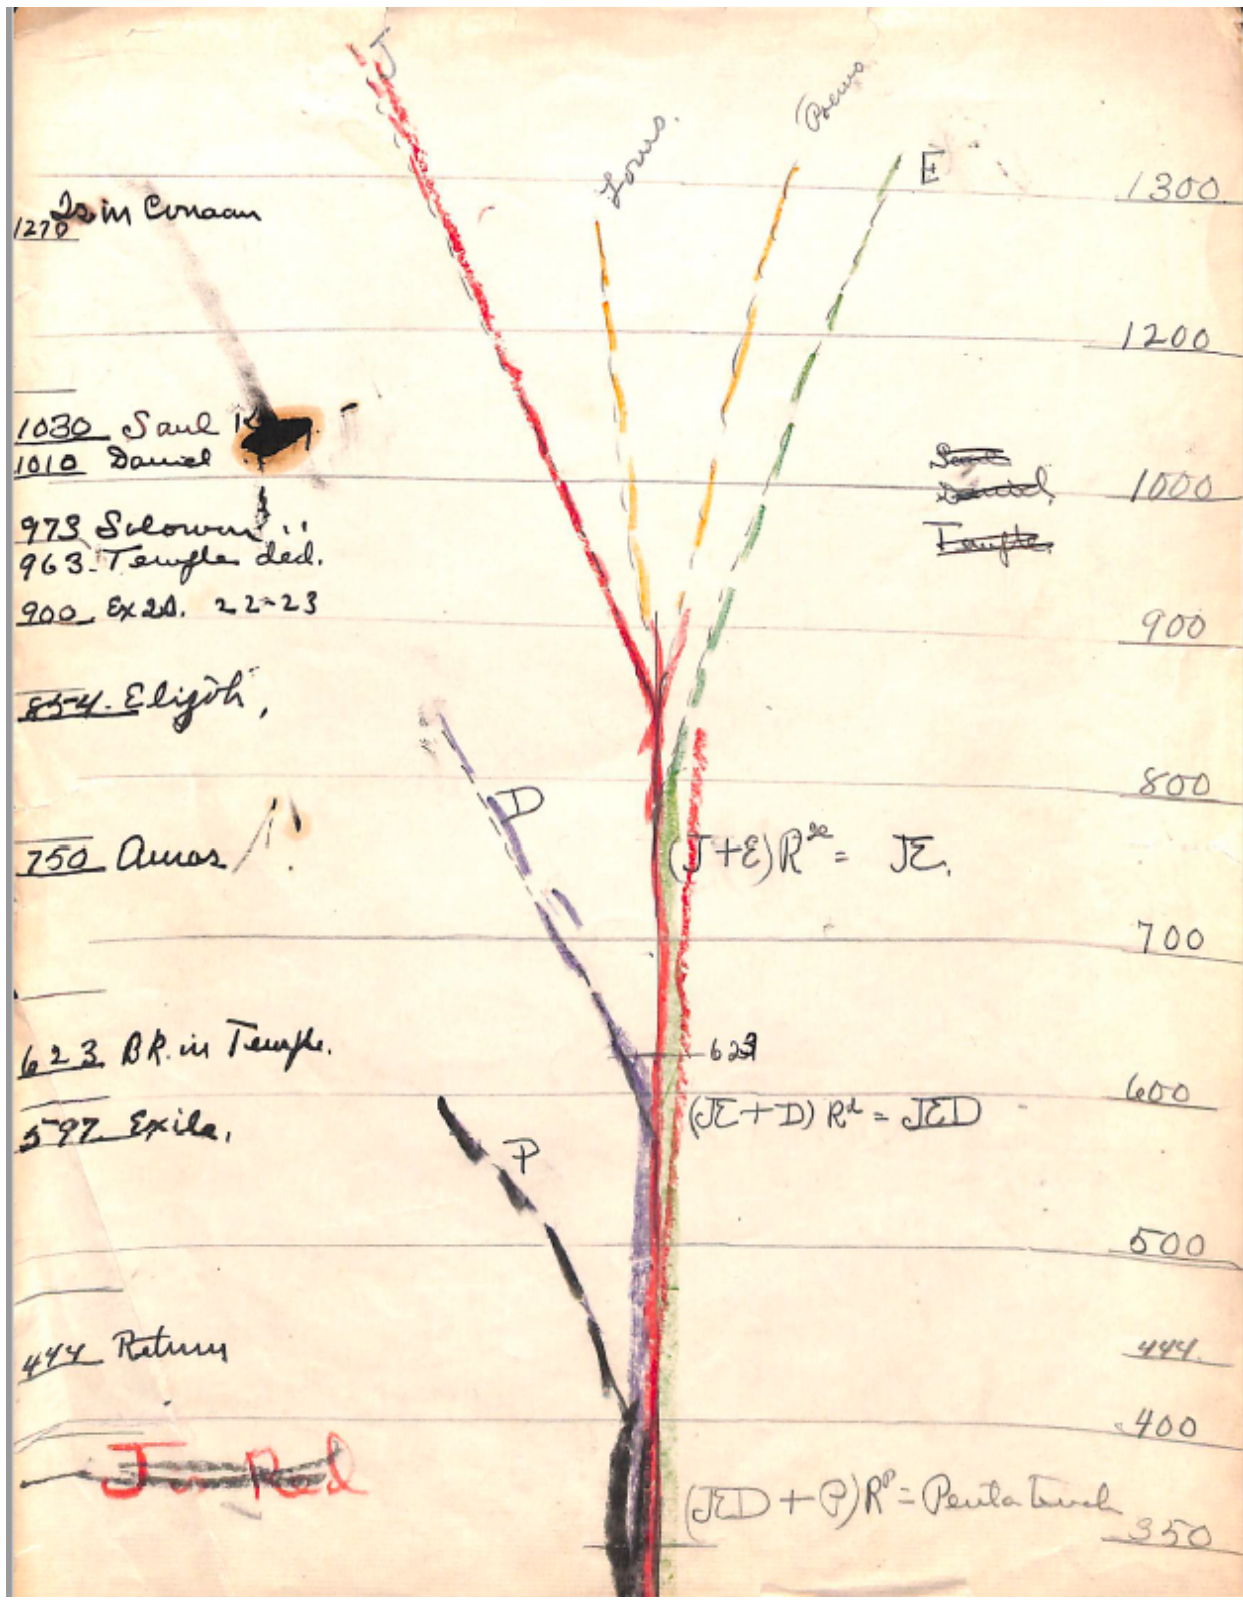 J
Laws.
Poems
E
1300
1270 Is in Canaan
1200
1030 Saul K
1010 Daniel
Saul
Daniel
1000
973 Solomon "
963. Temple ded.
Temple
900 Ex 20. 22-23
900
854. Elijah,
800
D
750 Amos
(J+E)R = JE.
700
623 BR. in Temple.
623
600
597 Exile.
(JE+D) Rd = JED
P
500
444 Return
444.
400
J in Red
(JED + P)Rp = Pentateuch
350